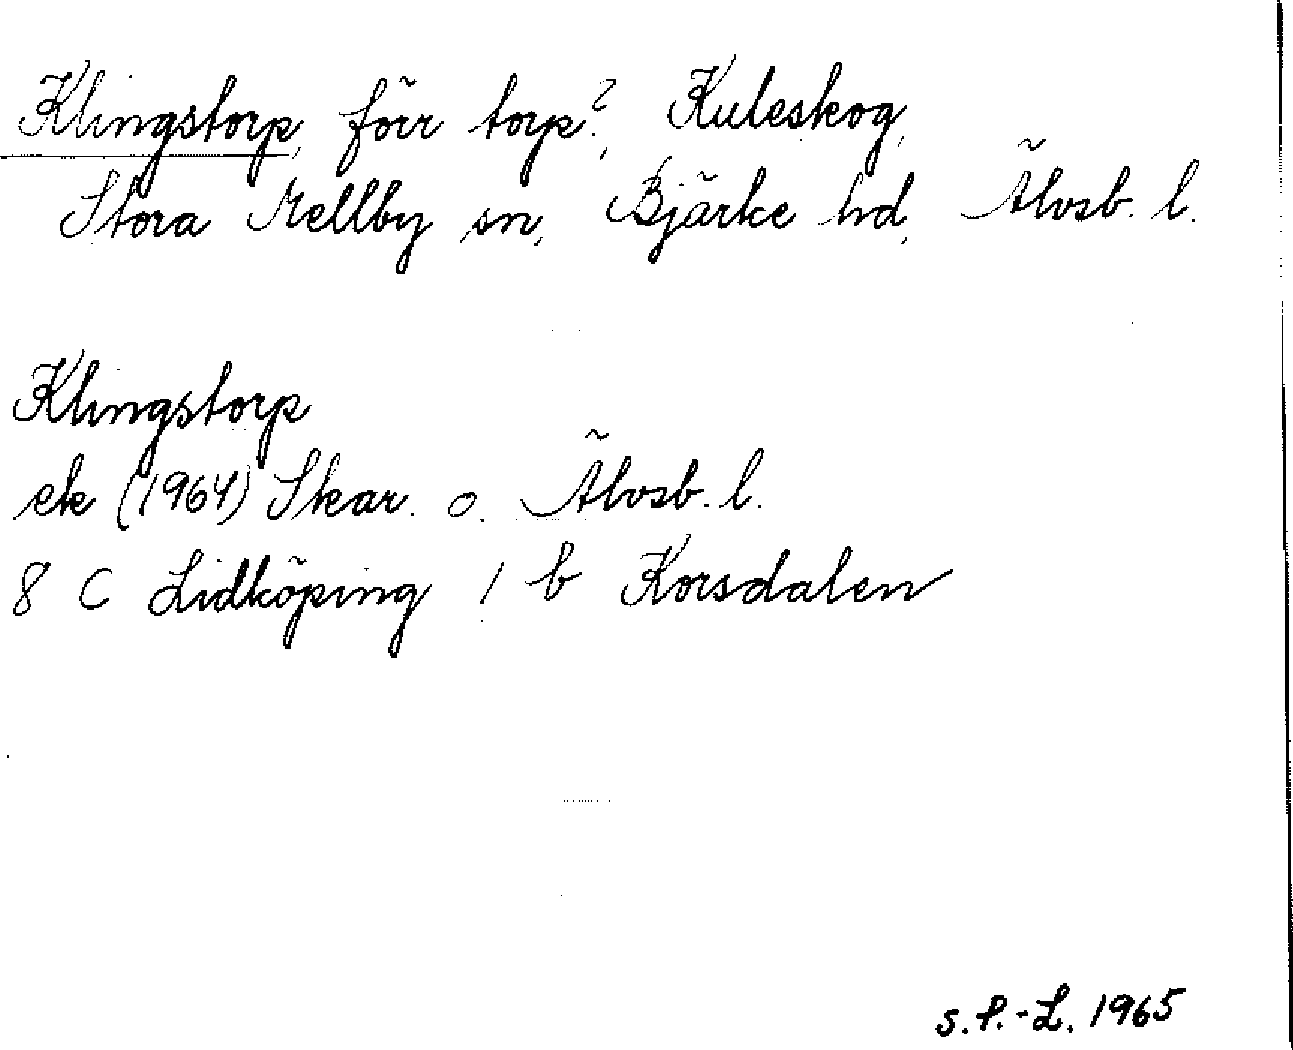 Klingstorp, förr torp?, Kuleskog,
Stora Mellby sn, Bjärke hd, Älvsb. l.
Klingstorp
ek (1964) Skar. o. Älvsb. l.
8 C Lidköping 1 b Korsdalen
S. P.-L. 1965